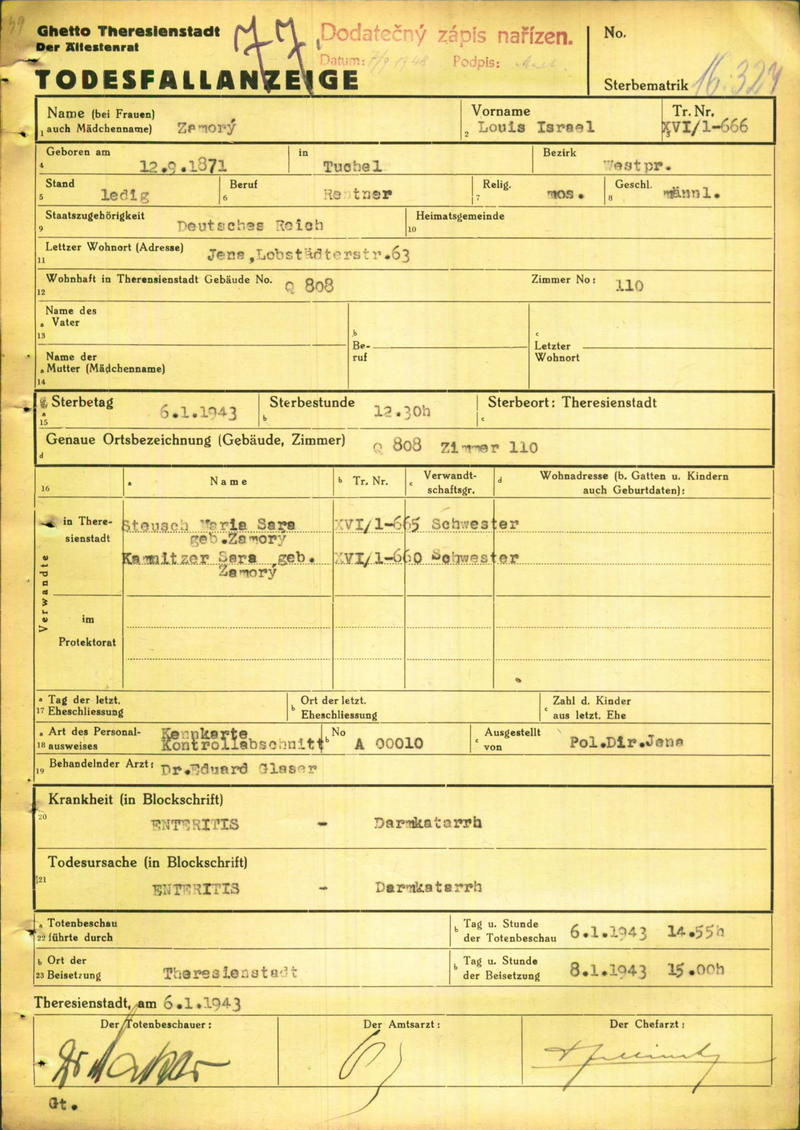 Ghetto Theresienstadt
Der Ältestenrat
TODESFALLANZEIGE
Dodatečný zápis nařízen.
Datum: 1948 Podpis:
No.
Sterbematrik 16.327
Name (bei Frauen)
1 auch Mädchenname) Zamorý
Vorname
2 Louis Israel
Tr. Nr.
3 XVI/1-666
Geboren am
4 12.9.1871
in Tuchel
Bezirk Westpr.
Stand
5 ledig
Beruf
6 Rentner
Relig.
7 mos.
Geschl.
8 männl.
Staatszugehörigkeit
9 Deutsches Reich
Heimatsgemeinde
10
Lettzer Wohnort (Adresse)
11 Jena, Lobstädterstr.63
Wohnhaft in Therensienstadt Gebäude No. Q 808 Zimmer No: 110
12
Name des
a Vater
13
b
Be-
ruf
c
Letzter
Wohnort
Name der
a Mutter (Mädchenname)
14
Sterbetag
a 15 6.1.1943
Sterbestunde
b 12.30h
Sterbeort: Theresienstadt
c
Genaue Ortsbezeichnung (Gebäude, Zimmer) Q 808 Zimmer 110
d
16 a Name b Tr. Nr. c Verwandt-
schaftsgr.
d Wohnadresse (b. Gatten u. Kindern
auch Geburtdaten):
Verwandte
in There-
sienstadt
Steusch Maria Sara XVI/1-665 Schwester
geb.Zamorý
Kamnitzer Sara geb. XVI/1-660 Schwester
Zamorý
im
Protektorat
a Tag der letzt.
17 Eheschliessung
b Ort der letzt.
Eheschliessung
c Zahl d. Kinder
aus letzt. Ehe
a Art des Personal-
18 ausweises
Kennkarte
Kontrollabschnitt
b No A 00010
c Ausgestellt
von Pol.Dir.Jena
Behandelnder Arzt: Dr.Eduard Glaser
19
Krankheit (in Blockschrift)
20
ENTERITIS - Darmkatarrh
Todesursache (in Blockschrift)
21
ENTERITIS - Darmkatarrh
a Totenbeschau
22 führte durch
b Tag u. Stunde
der Totenbeschau 6.1.1943 14.55h
b Ort der
23 Beisetzung Theresienstadt
b Tag u. Stunde
der Beisetzung 8.1.1943 15.00h
Theresienstadt, am 6.1.1943
Der Totenbeschauer: Der Amtsarzt: Der Chefarzt:
Gt.